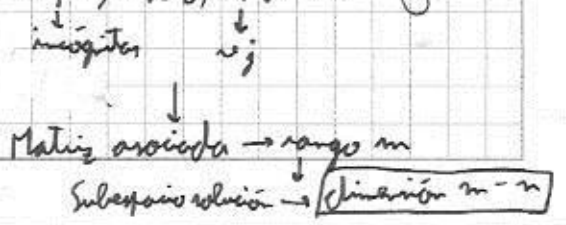 incógnitas vj
Matriz asociada → rango m
Subespacio solución → dimensión m-n